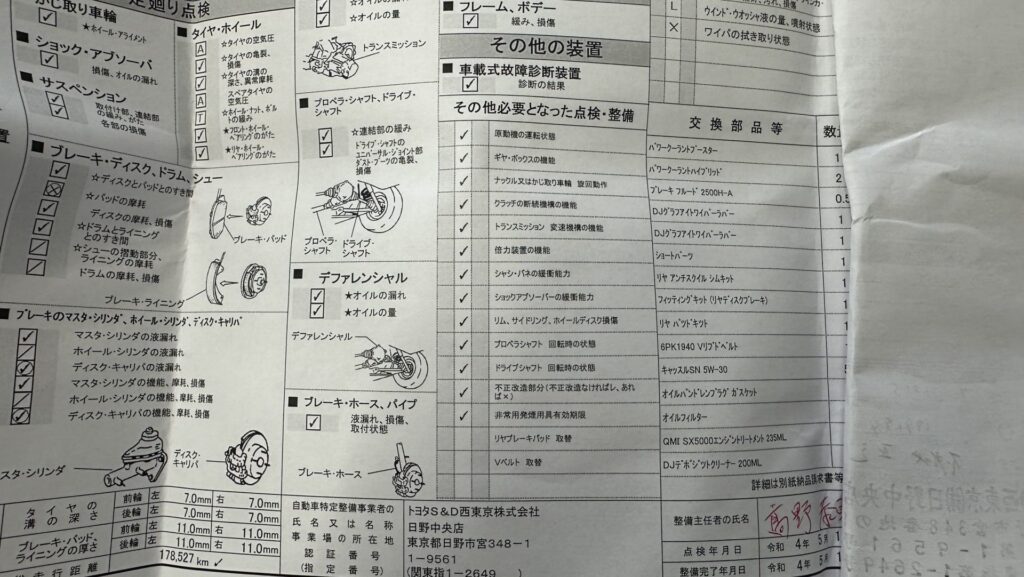 かじ取り車輪
★ホイール・アライメント
ショック・アブソーバ
損傷、オイルの漏れ
サスペンション
取付け部、連結部の緩み、がた
各部の損傷
ブレーキ・ディスク、ドラム、シュー
☆ディスクとパッドとのすき間
☆パッドの摩耗
ディスクの摩耗、損傷
☆ドラムとライニング
とのすき間
☆シューの摺動部分、
ライニングの摩耗
ドラムの摩耗、損傷
ブレーキ・パッド
ブレーキ・ライニング
ブレーキのマスタ・シリンダ、ホイール・シリンダ、ディスク・キャリパ
マスタ・シリンダの液漏れ
ホイール・シリンダの液漏れ
ディスク・キャリパの液漏れ
マスタ・シリンダの機能、摩耗、損傷
ホイール・シリンダの機能、摩耗、損傷
ディスク・キャリパの機能、摩耗、損傷
スタ・シリンダ
ディスク・
キャリパ
タイヤの
溝の深さ
前輪 左 7.0mm 右 7.0mm
後輪 左 7.0mm 右 7.0mm
ブレーキ・パッド、
ライニングの厚さ
前輪 左 11.0mm 右 11.0mm
後輪 左 11.0mm 右 11.0mm
走行距離 178,527 km
定廻り点検
タイヤ・ホイール
A ☆タイヤの空気圧
☆タイヤの亀裂、
損傷
☆タイヤの溝の
深さ、異常摩耗
A スペアタイヤの
空気圧
T ☆ホイール・ナット、ボル
トの緩み
★フロント・ホイール・
ベアリングのがた
★リヤ・ホイール・
ベアリングのがた
☆オイルの漏れ
☆オイルの量
トランスミッション
プロペラ・シャフト、ドライブ・
シャフト
☆連結部の緩み
ドライブ・シャフトの
ユニバーサル・ジョイント部
ダスト・ブーツの亀裂、
損傷
プロペラ・
シャフト
ドライブ・
シャフト
デファレンシャル
★オイルの漏れ
★オイルの量
デファレンシャル
ブレーキ・ホース、パイプ
液漏れ、損傷、
取付状態
ブレーキ・ホース
フレーム、ボデー
緩み、損傷
その他の装置
車載式故障診断装置
診断の結果
その他必要となった点検・整備
原動機の運転状態
ギヤ・ボックスの機能
ナックル又はかじ取り車輪 旋回動作
クラッチの断続機構の機能
トランスミッション 変速機構の機能
倍力装置の機能
シャシ・バネの緩衝能力
ショックアブソーバーの緩衝能力
リム、サイドリング、ホイールディスク損傷
プロペラシャフト 回転時の状態
ドライブシャフト 回転時の状態
不正改造部分(不正改造なければレ、あれ
ば×)
非常用発煙用具有効期限
リヤブレーキパッド 取替
Vベルト 取替
自動車特定整備事業者の
氏名又は名称
事業場の所在地
認証番号
(指定番号)
トヨタS&D西東京株式会社
日野中央店
東京都日野市宮348-1
1-9561
(関東指1-2649 )
L ウインド・ウオッシャ液の量、噴射状態
× ワイパの拭き取り状態
交換部品等 数
パワークーラントブースター 1
パワークーラントハイブリッド 2
ブレーキ フルード 2500H-A 0.5
DJグラファイトワイパーラバー 1
DJグラファイトワイパーラバー 1
ショートパーツ 1
リヤ アンチスクイル シムキット 1
フィッティングキット(リヤディスクブレーキ) 1
リヤ パッドキット 1
6PK1940 Vリブドベルト 1
キャッスルSN 5W-30 5
オイルパンドレンプラグ ガスケット
オイルフィルター
QMI SX5000エンジントリートメント 235ML
DJデポジットクリーナー 200ML
詳細は別紙納品請求書等
整備主任者の氏名 高野
点検年月日 令和 4年 5月 1
整備完了年月日 令和 4年 5月 1